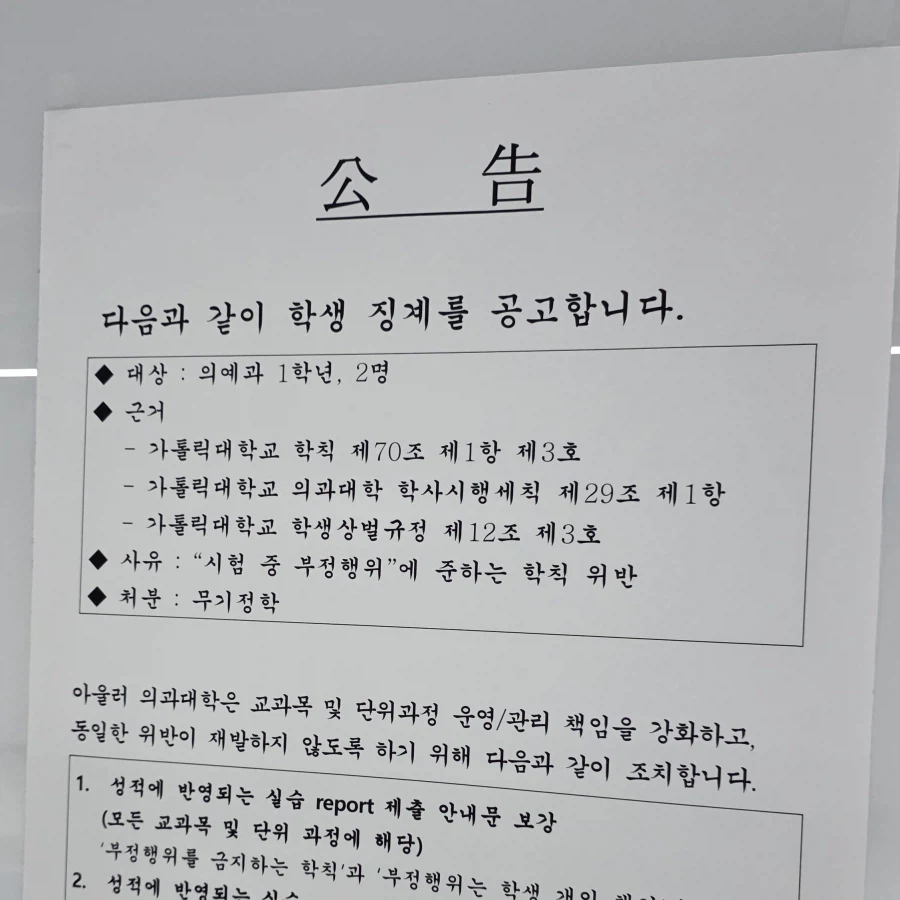 公 告
다음과 같이 학생 징계를 공고합니다.
◆ 대상 : 의예과 1학년, 2명
◆ 근거
- 가톨릭대학교 학칙 제70조 제1항 제3호
- 가톨릭대학교 의과대학 학사시행세칙 제29조 제1항
- 가톨릭대학교 학생상벌규정 제12조 제3호
◆ 사유 : “시험 중 부정행위”에 준하는 학칙 위반
◆ 처분 : 무기정학
아울러 의과대학은 교과목 및 단위과정 운영/관리 책임을 강화하고,
동일한 위반이 재발하지 않도록 하기 위해 다음과 같이 조치합니다.
1. 성적에 반영되는 실습 report 제출 안내문 보강
(모든 교과목 및 단위 과정에 해당)
'부정행위를 금지하는 학칙'과 '부정행위는 학생 개인
2. 성적에 반영되는 실습